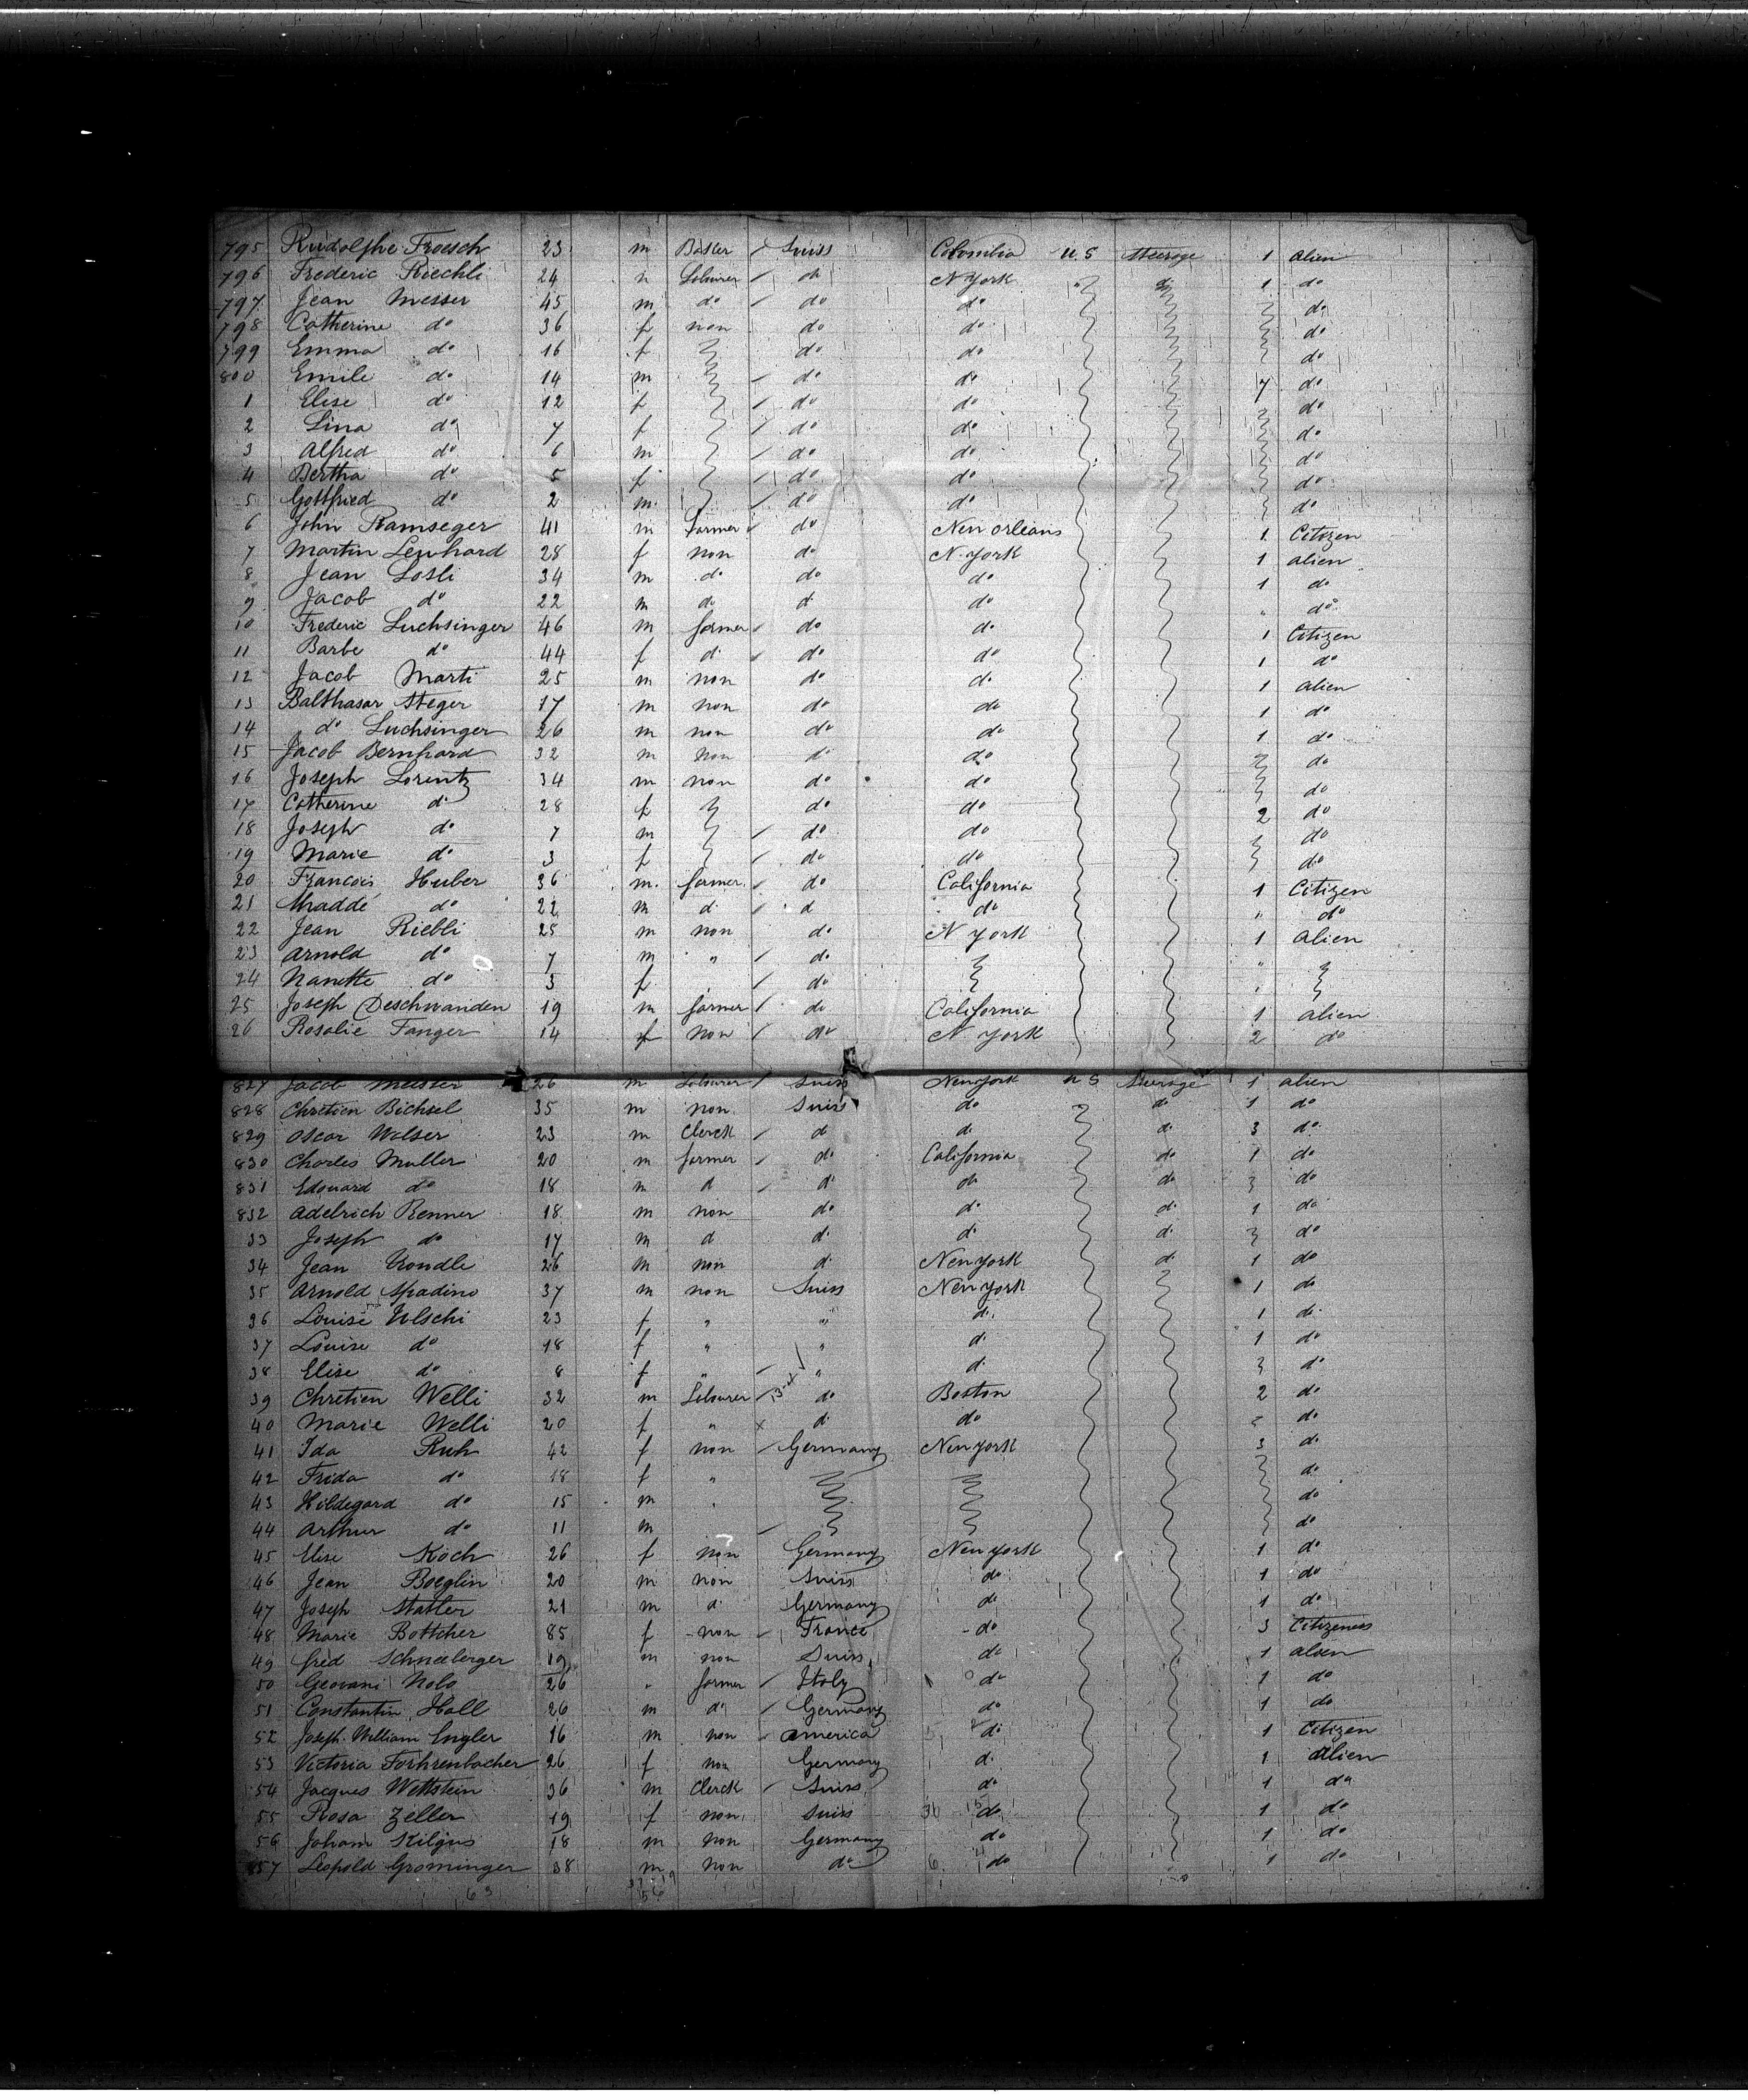 795 Rudolphe Froesch 23 m Basler Suiss Colombia U.S Steerage 1 alien
796 Frederic Riechli 24 " Labourer do N York " do 1 do
797 Jean Messer 45 m do do do do
798 Catherine do 36 f non do do do
799 Emma do 16 f do do do
800 Emile do 14 m do do 7 do
1 Elise do 12 f do do do
2 Lina do 7 f do do do
3 Alfred do 6 m do do do
4 Bertha do 5 f do do do
5 Gottfried do 2 m do do do
6 John Ramseger 41 m farmer do New orleans 1 Citizen
7 Martin Lenhard 28 f non do N. york 1 alien
8 Jean Losli 34 m do do do 1 do
9 Jacob do 22 m do d do " do
10 Frederic Luchsinger 46 m farmer do do 1 Citizen
11 Barbe do 44 f d do do 1 do
12 Jacob Marti 25 m non do do 1 alien
13 Balthasar Steger 17 m non do do 1 do
14 do Luchsinger 26 m non do do 1 do
15 Jacob Bernhard 32 m non d do do
16 Joseph Lorentz 34 m non do do do
17 Catherine do 28 f do do 2 do
18 Joseph do 7 m do do do
19 Marie do 3 f do do do
20 Francois Huber 36 m. farmer do California 1 Citizen
21 do 22 m d d do " do
22 Jean Riebli 25 m non do N york 1 alien
23 Arnold do 7 m " do "
24 Nanette do 3 f do "
25 Joseph Deschwanden 19 m farmer do California 1 alien
26 Rosalie Fanger 14 f non do N york 2 do
827 Jacob Meister 26 m Labourer Suiss New york U S Steerage 1 alien
828 Chretien Bichsel 35 m non. Suiss do do 1 do
829 Oscar Walser 23 m Clerck d d do 3 do
830 Charles Muller 20 m farmer do California do 1 do
831 Edouard do 18 m d d do do do
832 Adelrich Renner 18 m non do do do 1 do
33 Joseph do 17 m d d. d. d. do
34 Jean Trondle 26 m non d New york d. 1 do
35 Arnold Spadino 37 m non Suiss New york 1 do
36 Louise 23 f " " d. 1 do
37 Louise do 18 f " " d. 1 do
38 Elise do 8 f " " d. do
39 Chretien Welli 32 m Labourer do Boston 2 do
40 Marie Welli 20 f " x d do do
41 Ida Ruh 42 f non Germany New york 3 do
42 Frida do 18 f " do
43 Hildegard do 15 m " do
44 Arthur do 11 m do
45 Elise Koch 26 f non Germany New york 1 do
46 Jean Boeglin 20 m non Suiss do 1 do
47 Joseph Statler 21 m d. Germany do 1 do
48 Marie Bottcher 85 f non France do 3 Citizeness
49 fred Schneeberger 19 m non Suiss do 1 alien
50 Geovani Nolo 26 " farmer Italy do 1 do
51 Constantin Hall 26 m d Germany do 1 do
52 Joseph William Engler 16 m non america do 1 Citizen
53 Victoria Forhrenbacher 26 f non Germany d. 1 Alien
54 Jacques Wettstein 36 m Clerck Suiss do 1 do
55 Rosa Zeller 19 f non Suiss do 1 do
56 Joham Kilgus 18 m non Germany do 1 do
857 Leopold Grominger 38 m non do do 1 do
63
56